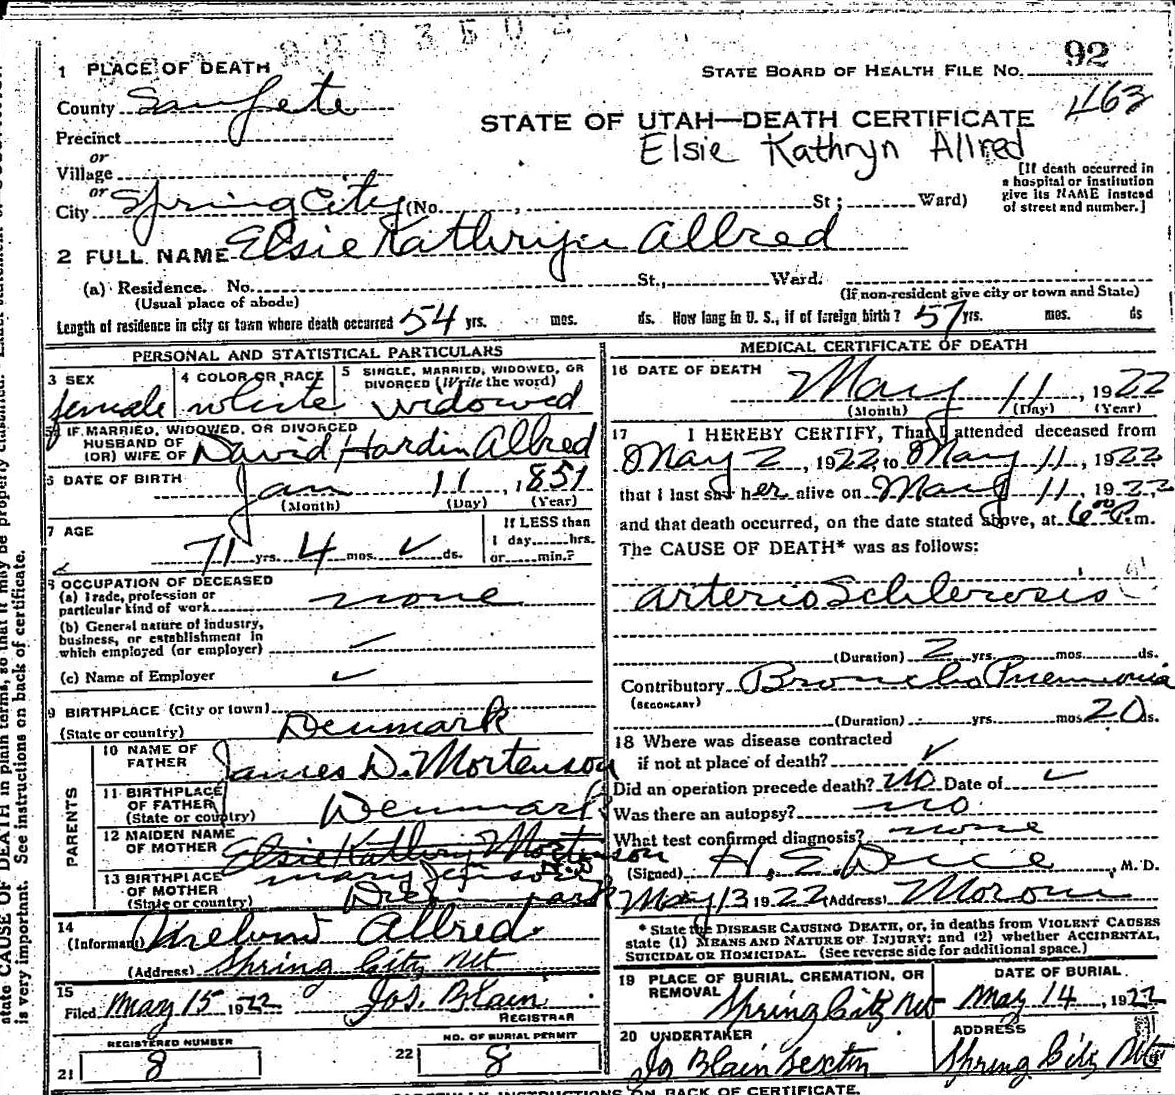 92
1 PLACE OF DEATH
STATE BOARD OF HEALTH FILE NO.
463
County Sanpete
STATE OF UTAH—DEATH CERTIFICATE
Precinct
Elsie Kathryn Allred
or
Village
or
City Spring City (No. , St; Ward)
[If death occurred in
a hospital or institution
give its NAME instead
of street and number.]
2 FULL NAME Elsie Kathryn Allred
(a) Residence. No. St., Ward.
(Usual place of abode)
(If non-resident give city or town and State)
Length of residence in city or town where death occurred 54 yrs. mos. ds. How long in U. S., if of foreign birth? 57 yrs. mos. ds
PERSONAL AND STATISTICAL PARTICULARS
3 SEX
female
4 COLOR OR RACE
white
5 SINGLE, MARRIED, WIDOWED, OR
DIVORCED (Write the word)
widowed
IF MARRIED, WIDOWED, OR DIVORCED
HUSBAND OF
(OR) WIFE OF David Hardin Allred
6 DATE OF BIRTH
Jan 11, 1851
(Month) (Day) (Year)
7 AGE
71 yrs. 4 mos. ✓ ds.
If LESS than
1 day......hrs.
or......min.?
8 OCCUPATION OF DECEASED
(a) Trade, profession or
particular kind of work none
(b) General nature of industry,
business, or establishment in
which employed (or employer) ✓
(c) Name of Employer ✓
9 BIRTHPLACE (City or town)
(State or country) Denmark
PARENTS
10 NAME OF
FATHER James D. Mortenson
11 BIRTHPLACE
OF FATHER
(State or country) Denmark
12 MAIDEN NAME
OF MOTHER Elsie Kathryn Mortenson
13 BIRTHPLACE
OF MOTHER
(State or country)
14
(Informant) Melvin Allred
(Address) Spring City Ut
15
Filed May 15 1922 Jos. Blain
REGISTRAR
REGISTERED NUMBER
21 8
NO. OF BURIAL PERMIT
22 8
MEDICAL CERTIFICATE OF DEATH
16 DATE OF DEATH
May 11, 1922
(Month) (Day) (Year)
17 I HEREBY CERTIFY, That I attended deceased from
May 2, 1922, to May 11, 1922
that I last saw her alive on May 11, 1922
and that death occurred, on the date stated above, at 6 00 P.m.
The CAUSE OF DEATH* was as follows:
Arterio Schlerosis
(Duration) 2 yrs. mos. ds.
Contributory Broncho Pneumonia
(SECONDARY)
(Duration) yrs. mos 20 ds.
18 Where was disease contracted
if not at place of death? ✓
Did an operation precede death? no Date of ✓
Was there an autopsy? no
What test confirmed diagnosis? none
(Signed) , M.D.
May 13 1922 (Address) Moroni
* State the DISEASE CAUSING DEATH, or, in deaths from VIOLENT CAUSES
state (1) MEANS AND NATURE OF INJURY; and (2) whether ACCIDENTAL,
SUICIDAL OR HOMICIDAL. (See reverse side for additional space.)
19 PLACE OF BURIAL, CREMATION, OR
REMOVAL
Spring City Ut
DATE OF BURIAL
May 14, 1922
20 UNDERTAKER
Jos Blain Sexton
ADDRESS
Spring City Ut
state CAUSE OF DEATH in plain terms, so that it may be properly classified.
is very important. See instructions on back of certificate.
CAREFULLY INSTRUCTIONS ON BACK OF CERTIFICATE.